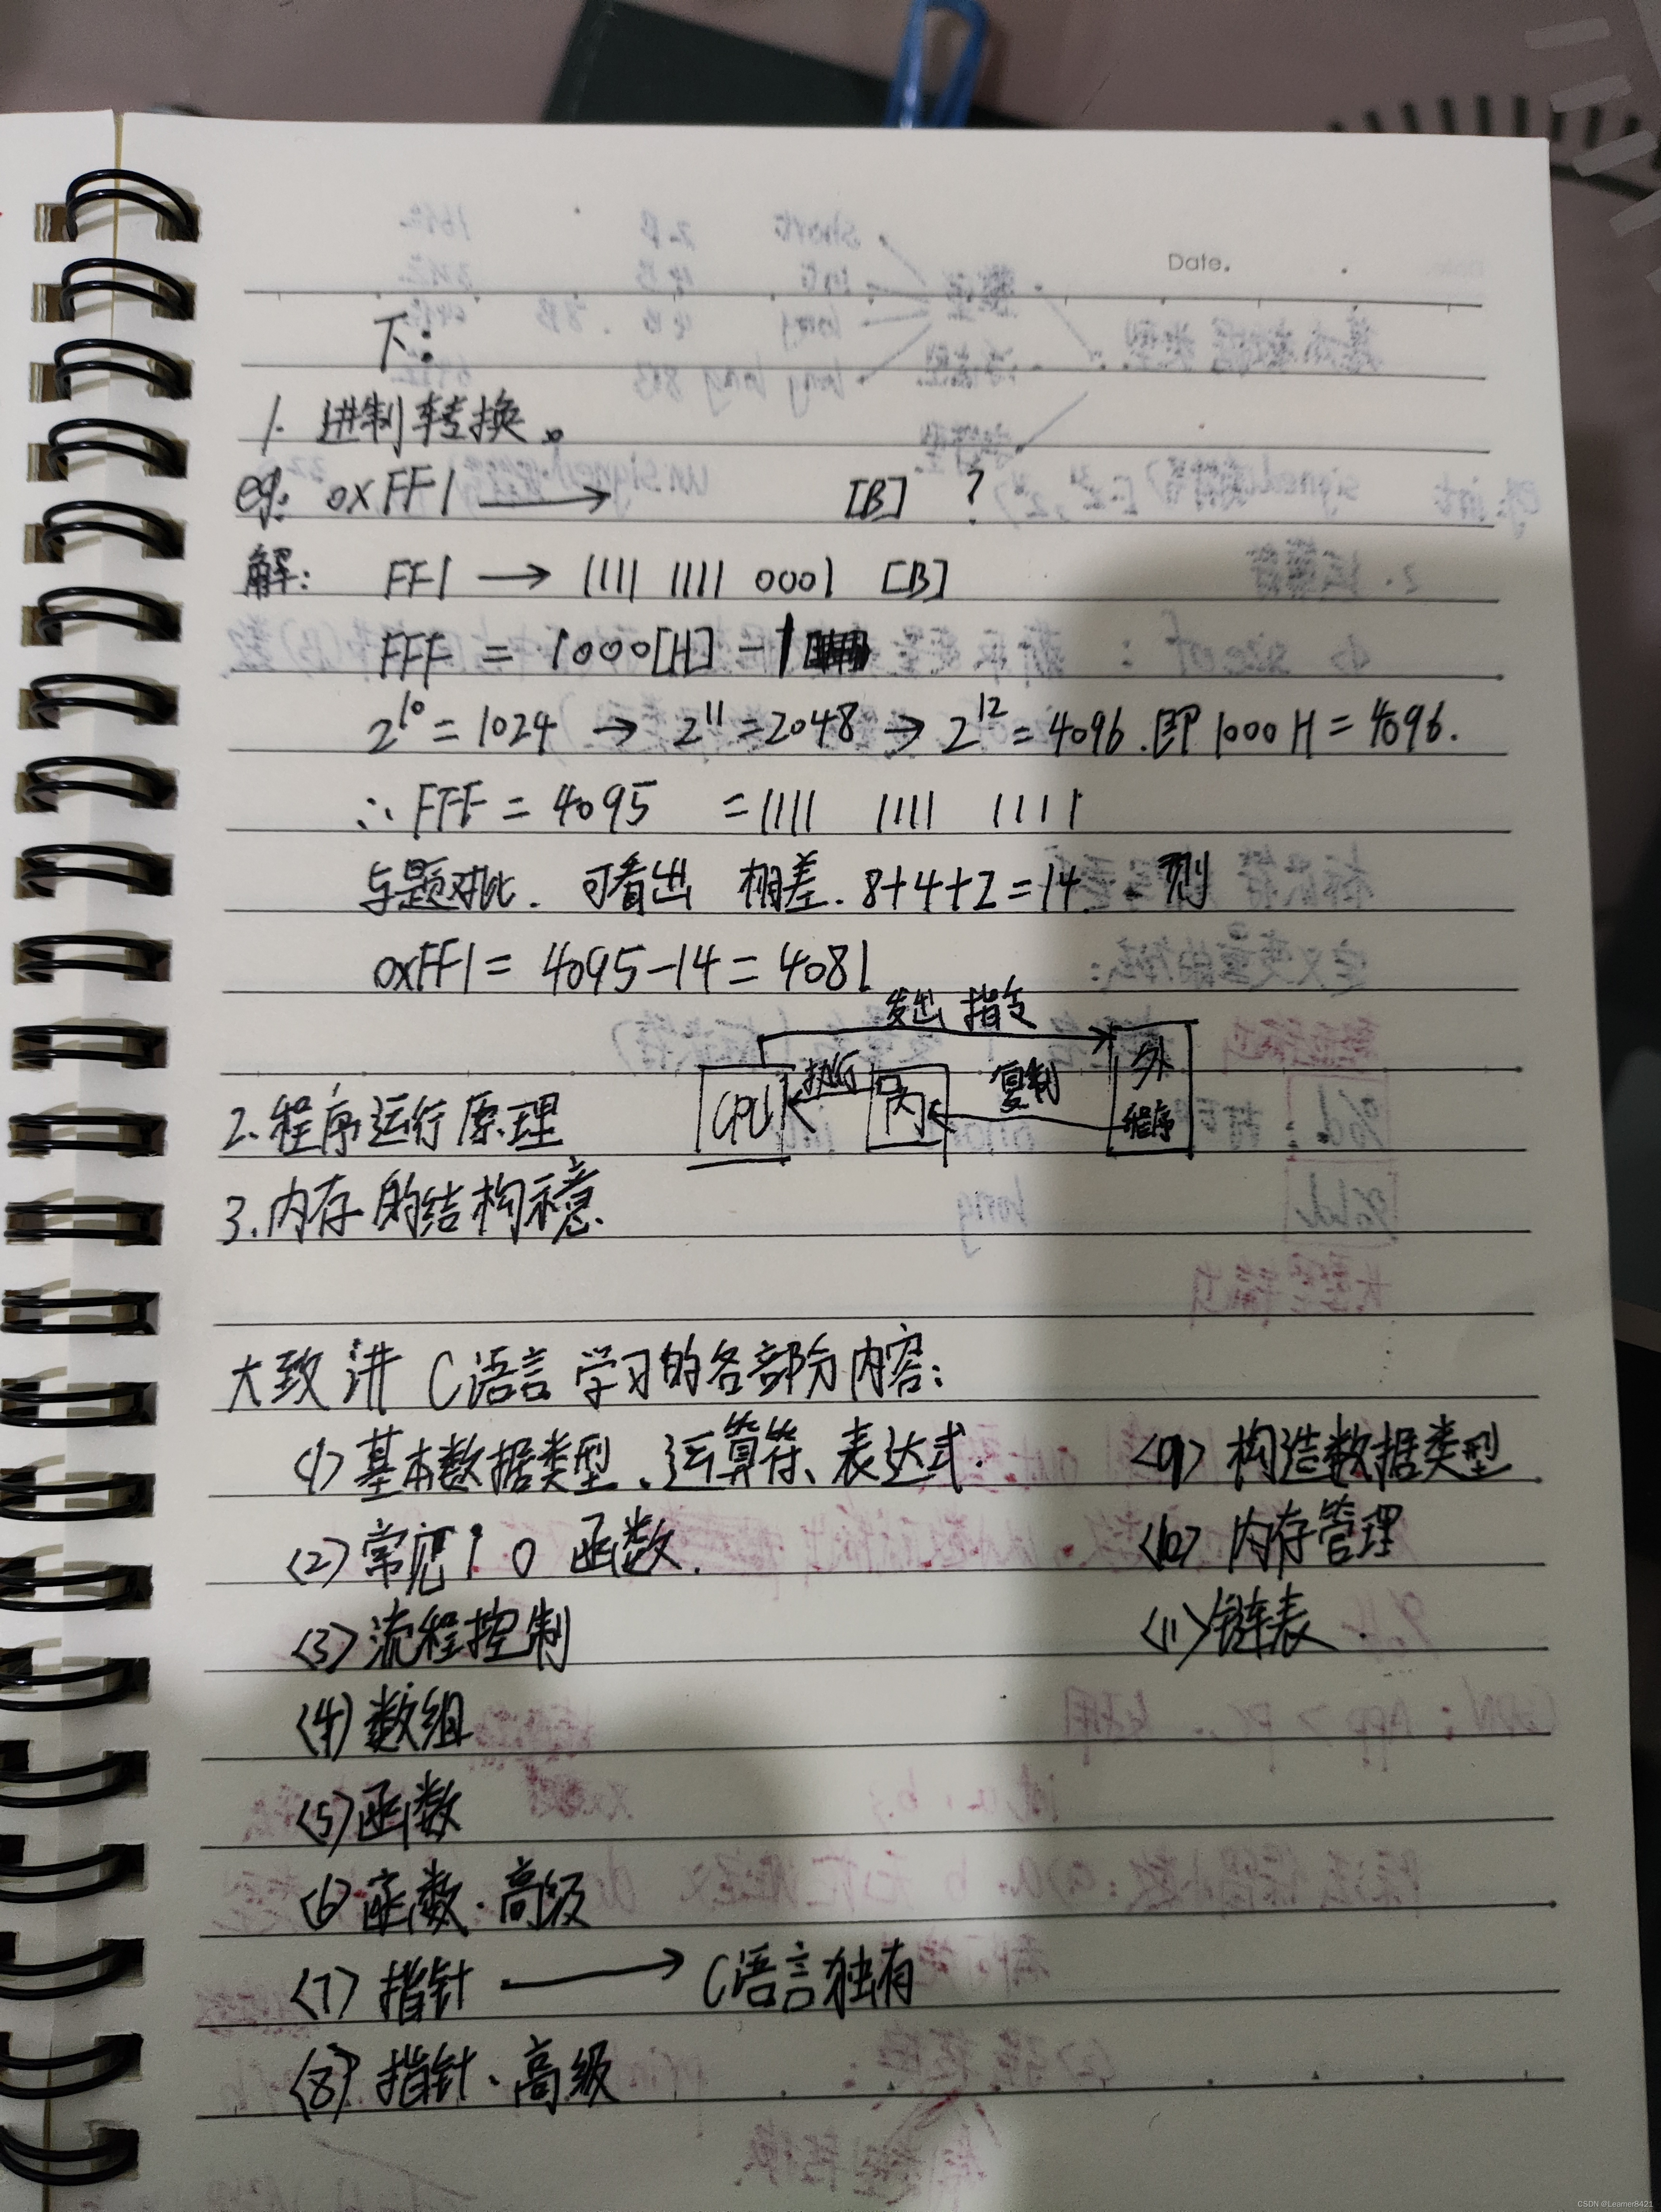 Date.
下:
1. 进制转换。
eg: 0xFF1 → [B] ?
解: FF1 → 1111 1111 0001 [B]
FFF = 1000[H] - 1
2^10 = 1024 → 2^11 = 2048 → 2^12 = 4096. 即 1000H = 4096.
∴ FFF = 4095 = 1111 1111 1111
与题对比. 可看出 相差. 8+4+2=14. 则
0xFF1 = 4095-14 = 4081
发出 指令
CPU 执行 内 复制 外 程序
2. 程序运行原理
3. 内存的结构示意.
大致讲 C语言 学习的各部分内容:
(1) 基本数据类型、运算符、表达式. (9) 构造数据类型
(2) 常见 I O 函数. (10) 内存管理
(3) 流程控制 (11) 链表.
(4) 数组
(5) 函数
(6) 函数、高级
(7) 指针 → C语言独有
(8) 指针、高级
CSDN @Learner8421